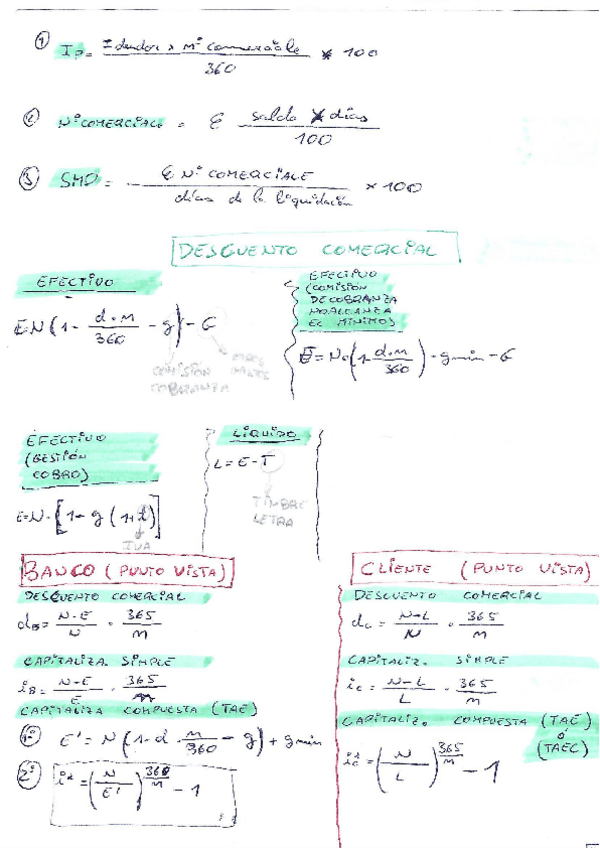 ① Ip = I deudor x Nº comerciale / 360 * 100
② Nº COMERCIALE = Σ saldo x días / 100
③ SMD = Σ Nº COMERCIALE / días de la liquidación x 100
DESCUENTO COMERCIAL
EFECTIVO
E=N(1- d.m / 360 - g) - G
COMISIÓN COBRANZA
GASTOS
EFECTIVO
(COMISIÓN
DE COBRANZA
NO ALCANZA
EL MÍNIMO)
E=N.(1- d.m / 360) - gmin - G
EFECTIVO
(GESTIÓN
COBRO)
E=N.[1-g(1+t)]
IVA
LÍQUIDO
L=E-T
TIMBRE
LETRA
BANCO (PUNTO VISTA)
DESCUENTO COMERCIAL
dB= N-E / N . 365 / m
CAPITALIZA. SIMPLE
iB= N-E / E . 365 / m
CAPITALIZA COMPUESTA (TAE)
1º E' = N(1-d . m / 360 - g) + gmin
2º i* = (N / E')^(365 / m) - 1
CLIENTE (PUNTO VISTA)
DESCUENTO COMERCIAL
dc = N-L / N . 365 / m
CAPITALIZ. SIMPLE
ic = N-L / L . 365 / m
CAPITALIZ. COMPUESTA (TAE)
ó
(TAEC)
ic* = (N / L)^(365 / m) - 1